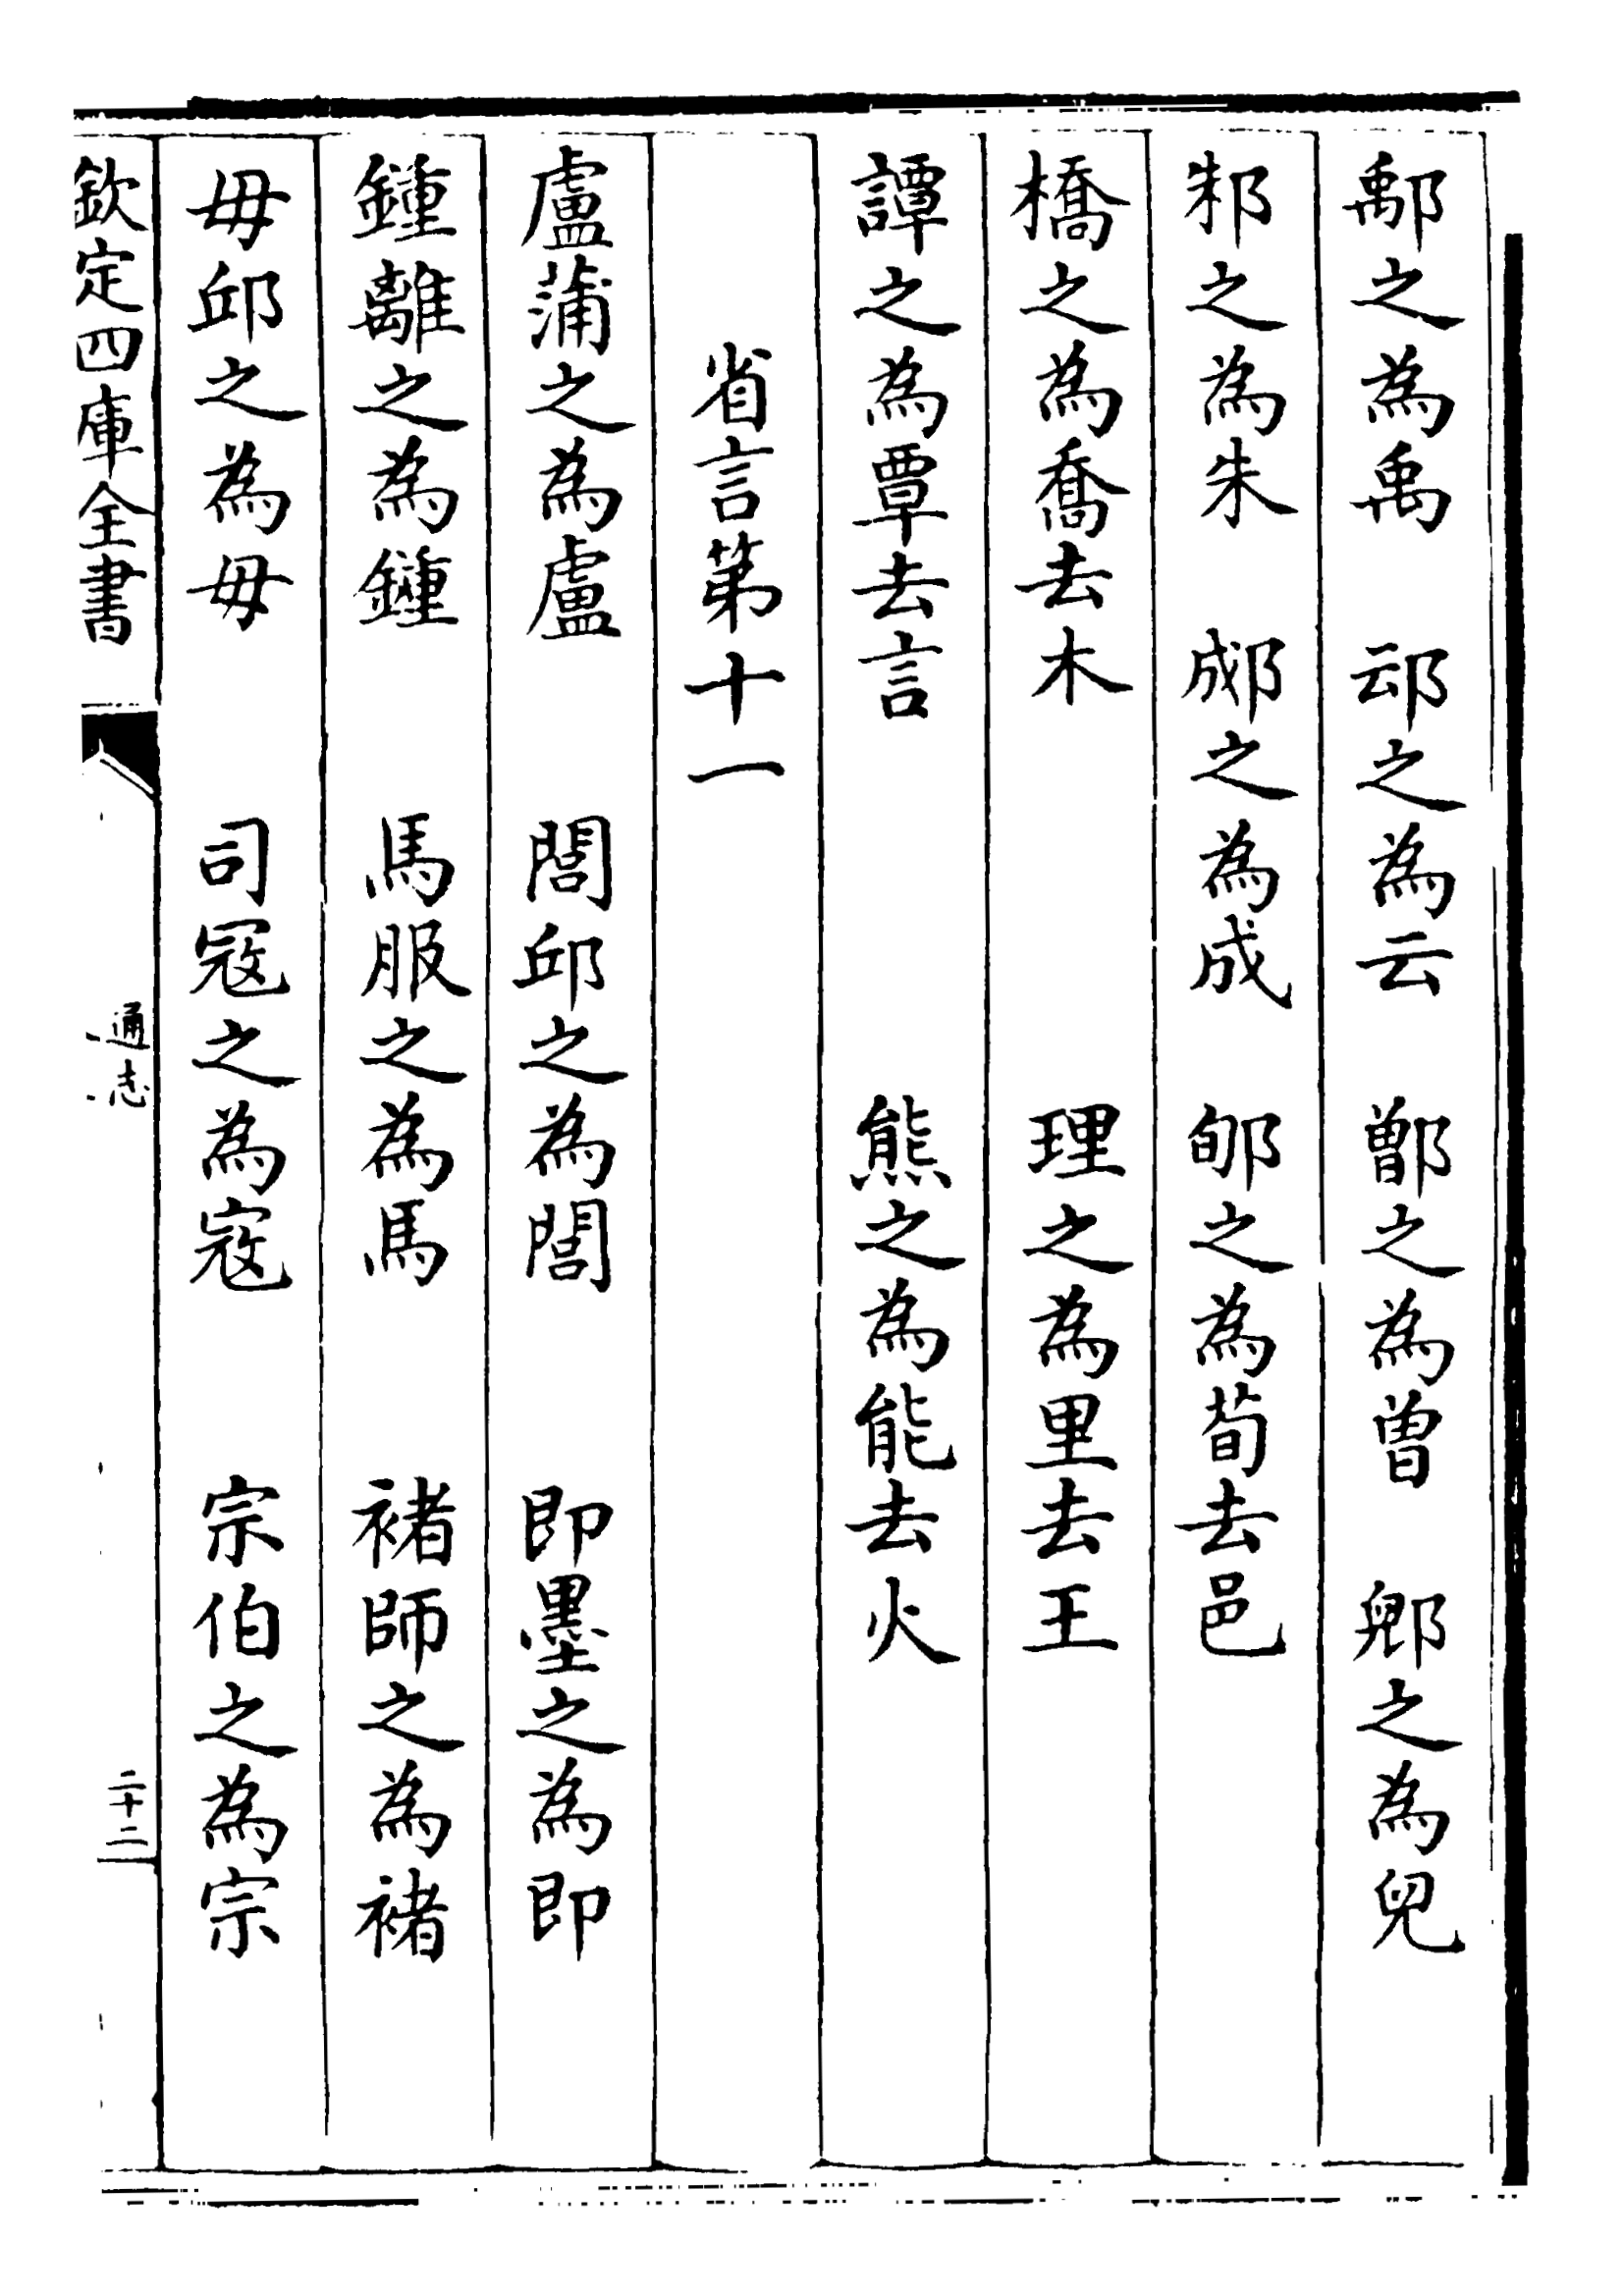 鄅之為禹　䢵之為云　鄫之為曾　郳之為兒
邾之為朱　郕之為成　郇之為荀去邑
橋之為喬去木　理之為里去王
譚之為覃去言　熊之為能去火
省言第十一
盧蒲之為盧　閭邱之為閭　即墨之為即
鍾離之為鍾　馬服之為馬　褚師之為褚
毋邱之為毋　司寇之為寇　宗伯之為宗
欽定四庫全書　通志　二十二